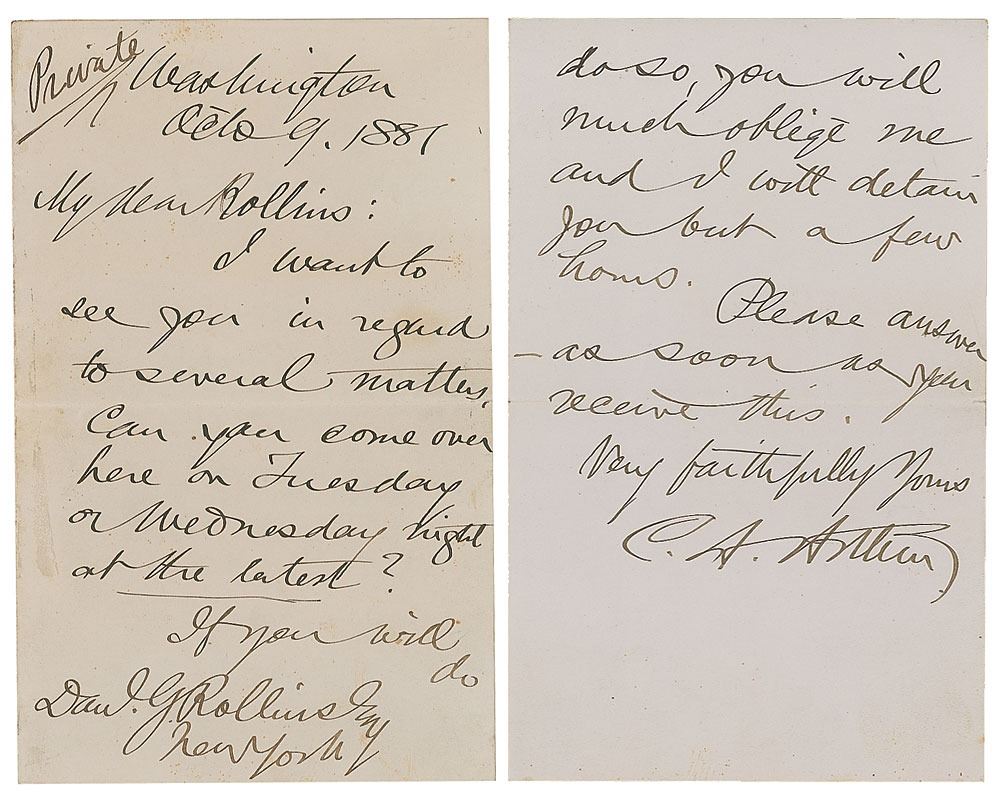 Private
Washington
Octo 9. 1881
My dear Rollins:
I want to
see you in regard
to several matters.
Can you come over
here on Tuesday
or Wednesday night
at the latest?
If you will
do
Danl. G. Rollins Esq
New York
do so, you will
much oblige me
and I will detain
you but a few
hours.
Please answer
- as soon as you
receive this.
Very faithfully Yours
C. A. Arthur